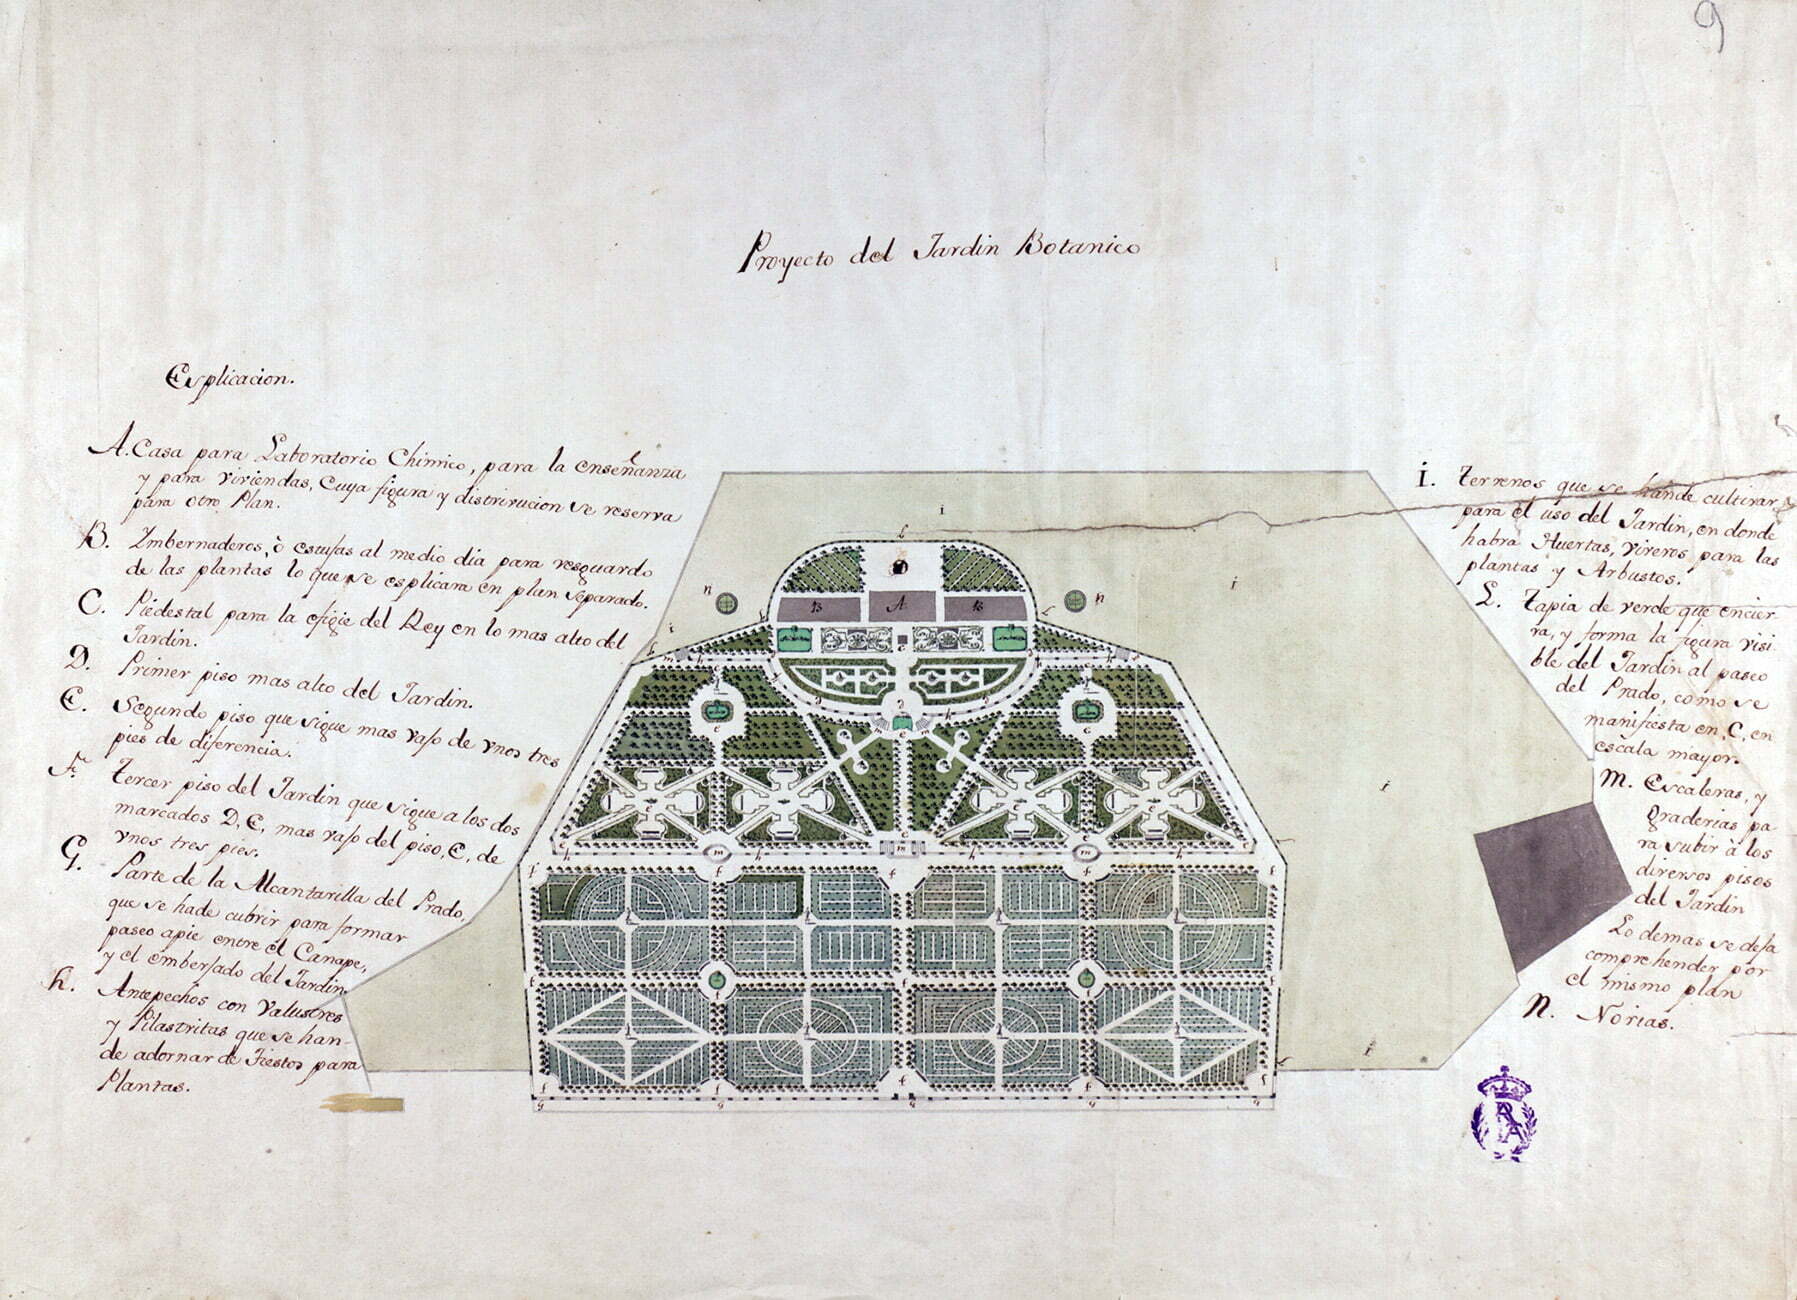 9
Proyecto del Jardin Botanico
Esplicacion.
A. Casa para Laboratorio Chimico, para la enseñanza
y para viviendas, Cuya figura y distrivucion se reserva
para otro Plan.
B. Imbernaderos, ò estufas al medio dia para resguardo
de las plantas lo que se esplicara en plan separado.
C. Piedestal para la efigie del Rey en lo mas alto del
Jardin.
D. Primer piso mas alto del Jardin.
E. Segundo piso que sigue mas vajo de vnos tres
pies de diferencia.
F. tercer piso del Jardin que sigue a los dos
marcados D, E, mas vajo del piso, E, de
vnos tres pies.
G. Parte de la Alcantarilla del Prado,
que se hade cubrir para formar
paseo apie entre el Canape,
y el embersado del Jardin
h. Antepechos con Valustres
y Pilastritas que se han
de adornar de Tiestos para
Plantas.
i. terrenos que se hande cultivar
para el uso del Jardin, en donde
habra Huertas, viveros para las
plantas y Arbustos.
L. tapia de verde que encier
ra, y forma la figura visi
ble del Jardin al paseo
del Prado, como se
manifiesta en, C, en
escala mayor.
m. Escaleras, y
graderias pa
ra subir à los
diversos pisos
del Jardin
Lo demas se deja
comprehender por
el mismo plan
n. Norias.
i
L
D
n
n
B
A
B
i
i
i
i
g
g
g
g
g
RA